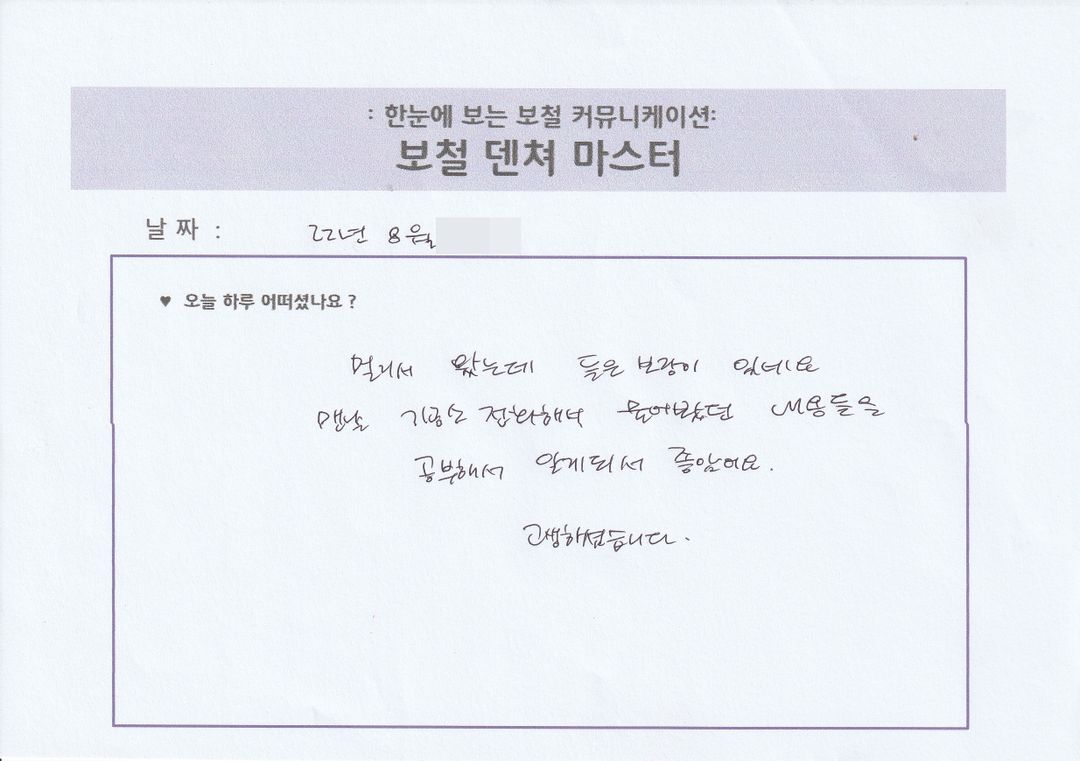 : 한눈에 보는 보철 커뮤니케이션:
보철 덴쳐 마스터
날 짜 : 22년 8월
♥ 오늘 하루 어떠셨나요 ?
멀리서 왔는데 들은 보람이 있네요
맨날 기공소 전화해서 물어봤던 내용들을
공부해서 알게되서 좋았어요.
고생하셨습니다.